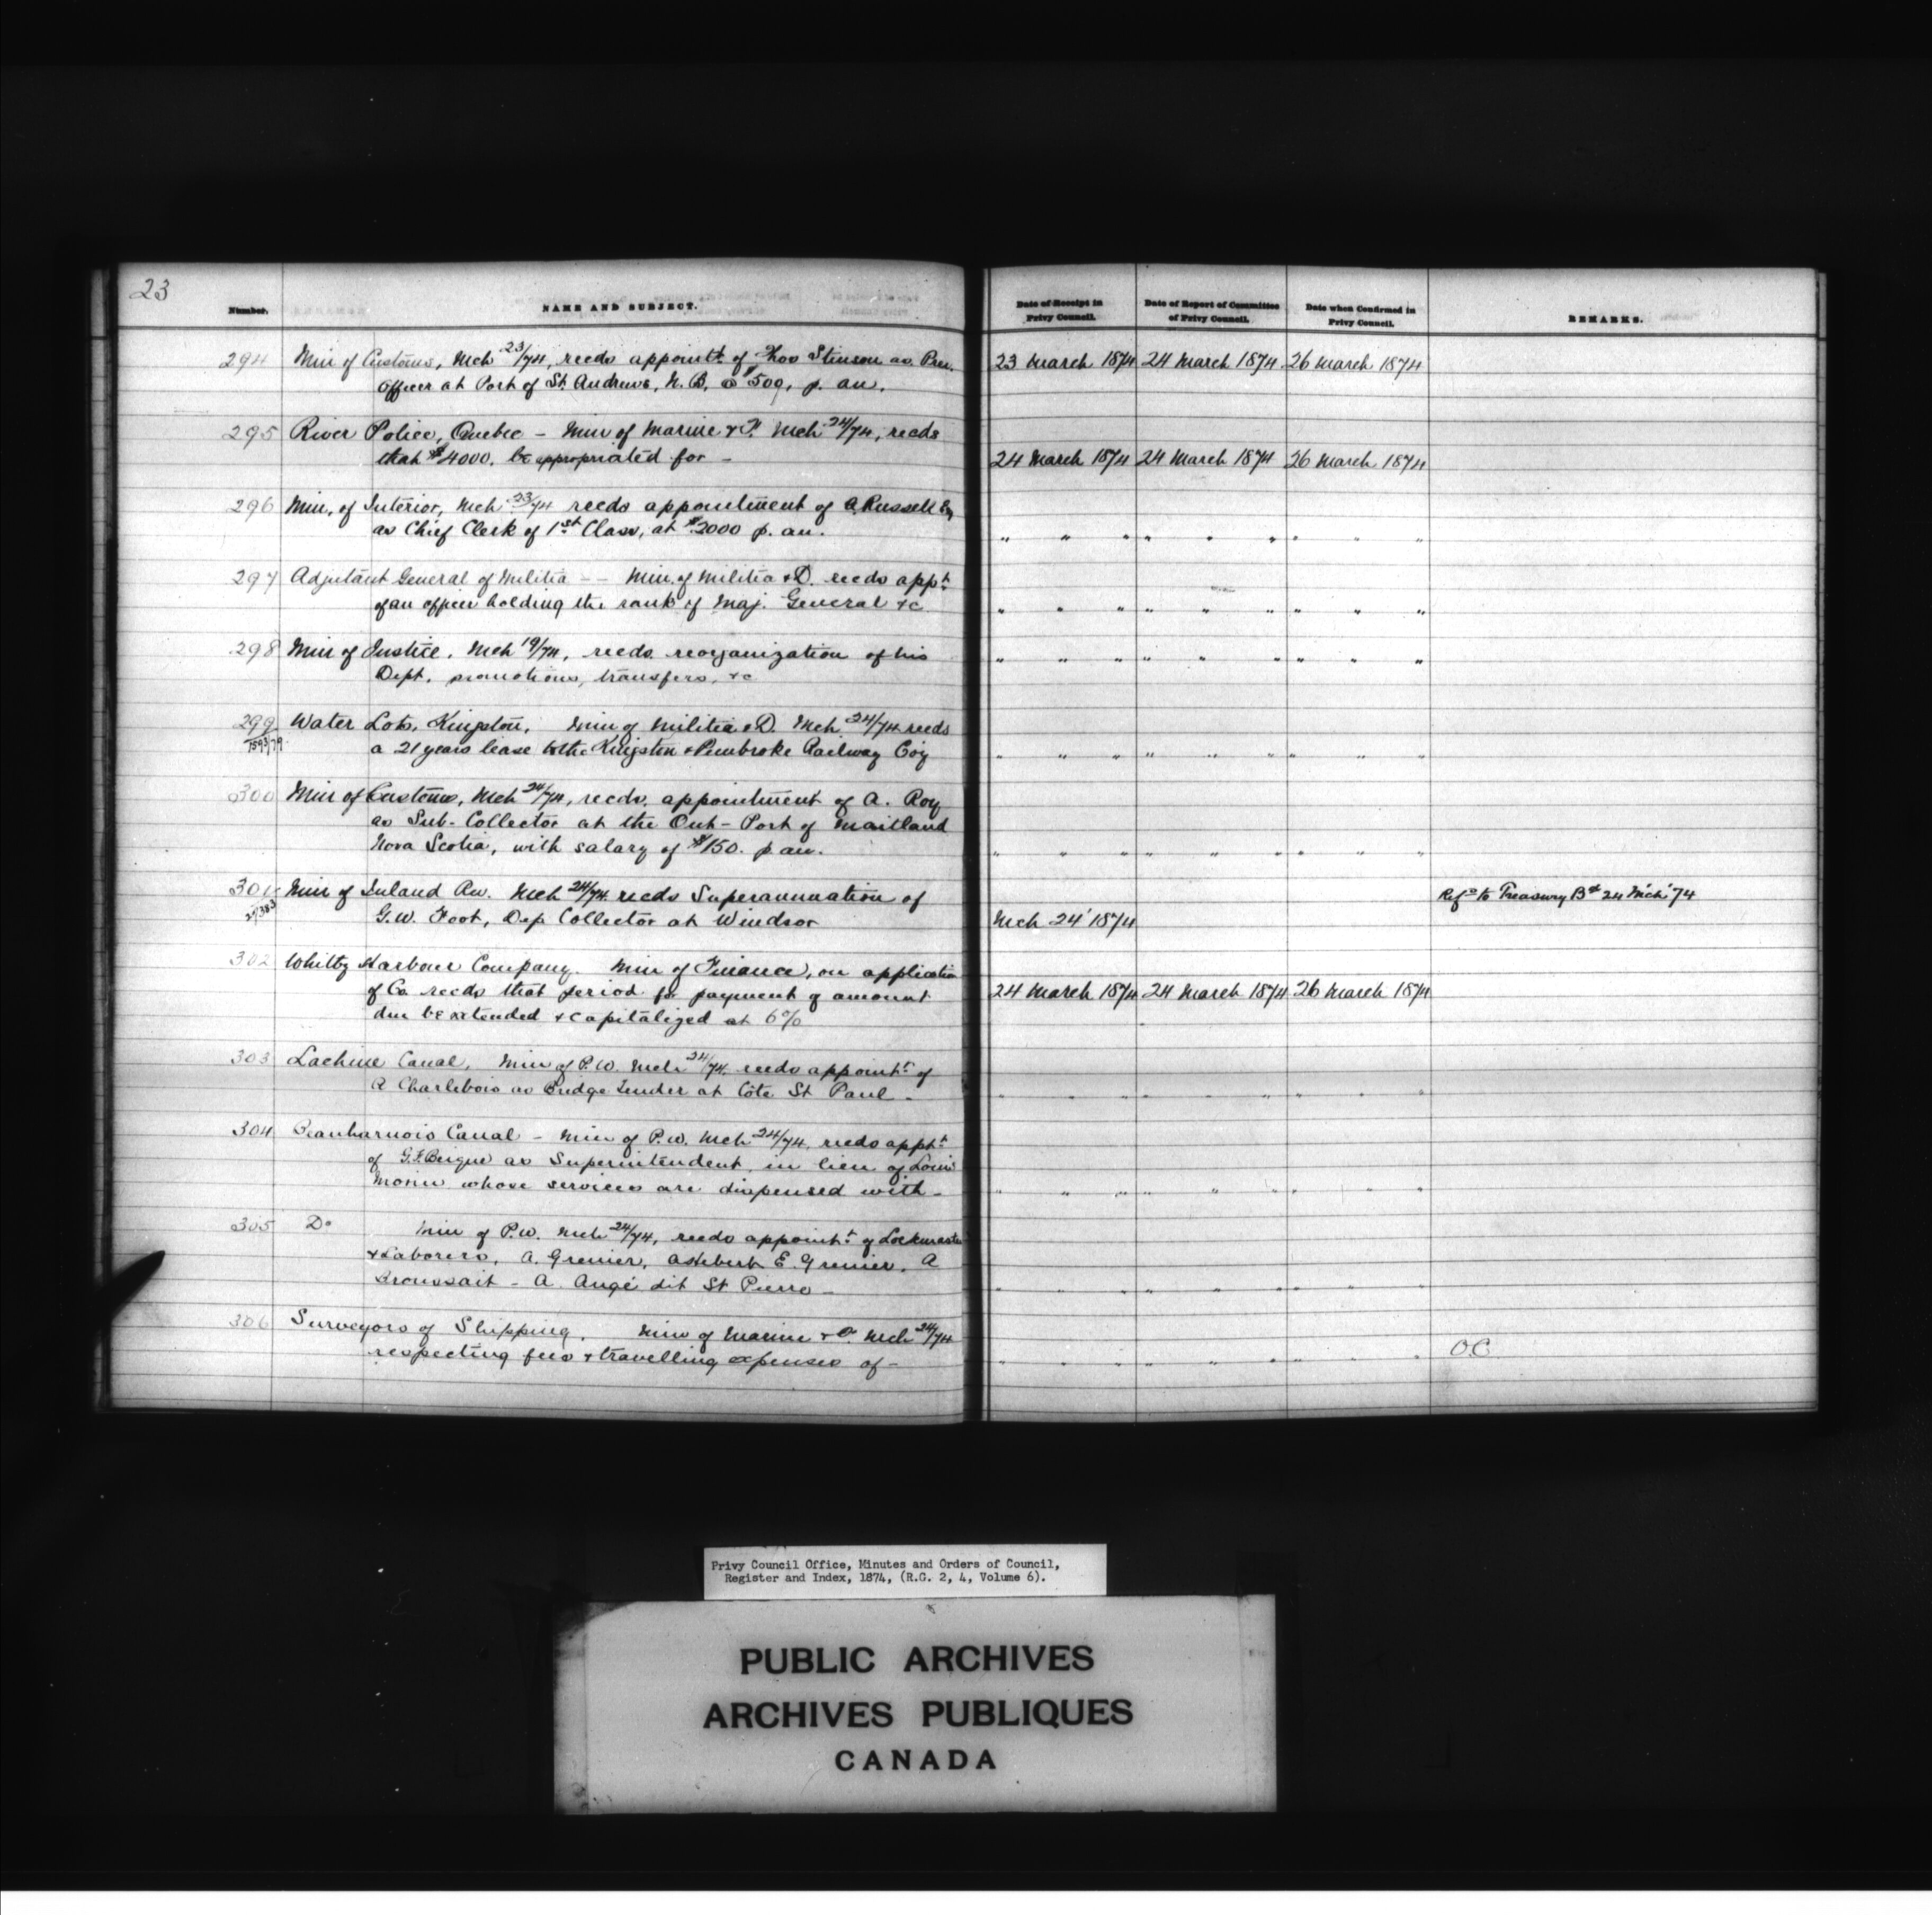 23
Number. NAME AND SUBJECT. Date of Receipt in Privy Council. Date of Report of Committee of Privy Council. Date when Confirmed in Privy Council. REMARKS.
294 Min of Customs, Mch 23/74, recds appointt of Thos Stinson as Prev. 23 March 1874 24 March 1874 26 March 1874
Officer at Port of St. Andrews, N. B. @ $500, p. an.
295 River Police, Quebec – Min of Marine & F. Mch 24/74, recds
that $4000. be appropriated for – 24 March 1874 24 March 1874 26 March 1874
296 Min. of Interior, Mch 23/74 recds appointment of A. Russell Esq
as Chief Clerk of 1st Class, at $2000 p. an. " " " " " " " " "
297 Adjutant General of Militia – – Min. of Militia & D. recds appt
of an officer holding the rank of Maj. General &c " " " " " " " " "
298 Min of Justice, Mch 19/74, recds. reorganization of his " " " " " " " " "
Dept. promotions, transfers, &c
299 Water Lots, Kingston, Min of Militia & D. Mch 24/74 recds
1593/79 a 21 years lease to the Kingston & Pembroke Railway Coy " " " " " " " " "
300 Min of Customs, Mch 24/74, recds. appointment of A. Roy
as Sub-Collector at the Out-Port of Maitland
Nova Scotia, with salary of $150. p. an. " " " " " " " " "
301 Min of Inland Rev. Mch 24/74 recds Superannuation of Refd to Treasury Bd 24 Mch '74
G. W. Foot, Dep Collector at Windsor Mch 24 1874
302 Whitby Harbour Company. Min of Finance, on application
of Co recds that period for payment of amount 24 March 1874 24 March 1874 26 March 1874
due be extended & capitalized at 6%
303 Lachine Canal, Min of P. W. Mch 24/74. recds appointt of
A Charlebois as Bridge Tender at Côte St Paul – " " " " " " " " "
304 Beauharnois Canal – Min of P. W. Mch 24/74, recds apptt
of G. F. as Superintendent in lieu of Louis
whose services are dispensed with – " " " " " " " " "
305 Do Min of P. W. Mch 24/74, recds appointt of Lockmaster
& Laborers, A. Grenier, E. Grenier, A
– A. Angé dit St Pierre – " " " " " " " " "
306 Surveyors of Shipping. Min of Marine & F. Mch 24/74
respecting fees & travelling expenses of – " " " " " " " " " O.C.
Privy Council Office, Minutes and Orders of Council,
Register and Index, 1874, (R.G. 2, 4, Volume 6).
PUBLIC ARCHIVES
ARCHIVES PUBLIQUES
CANADA